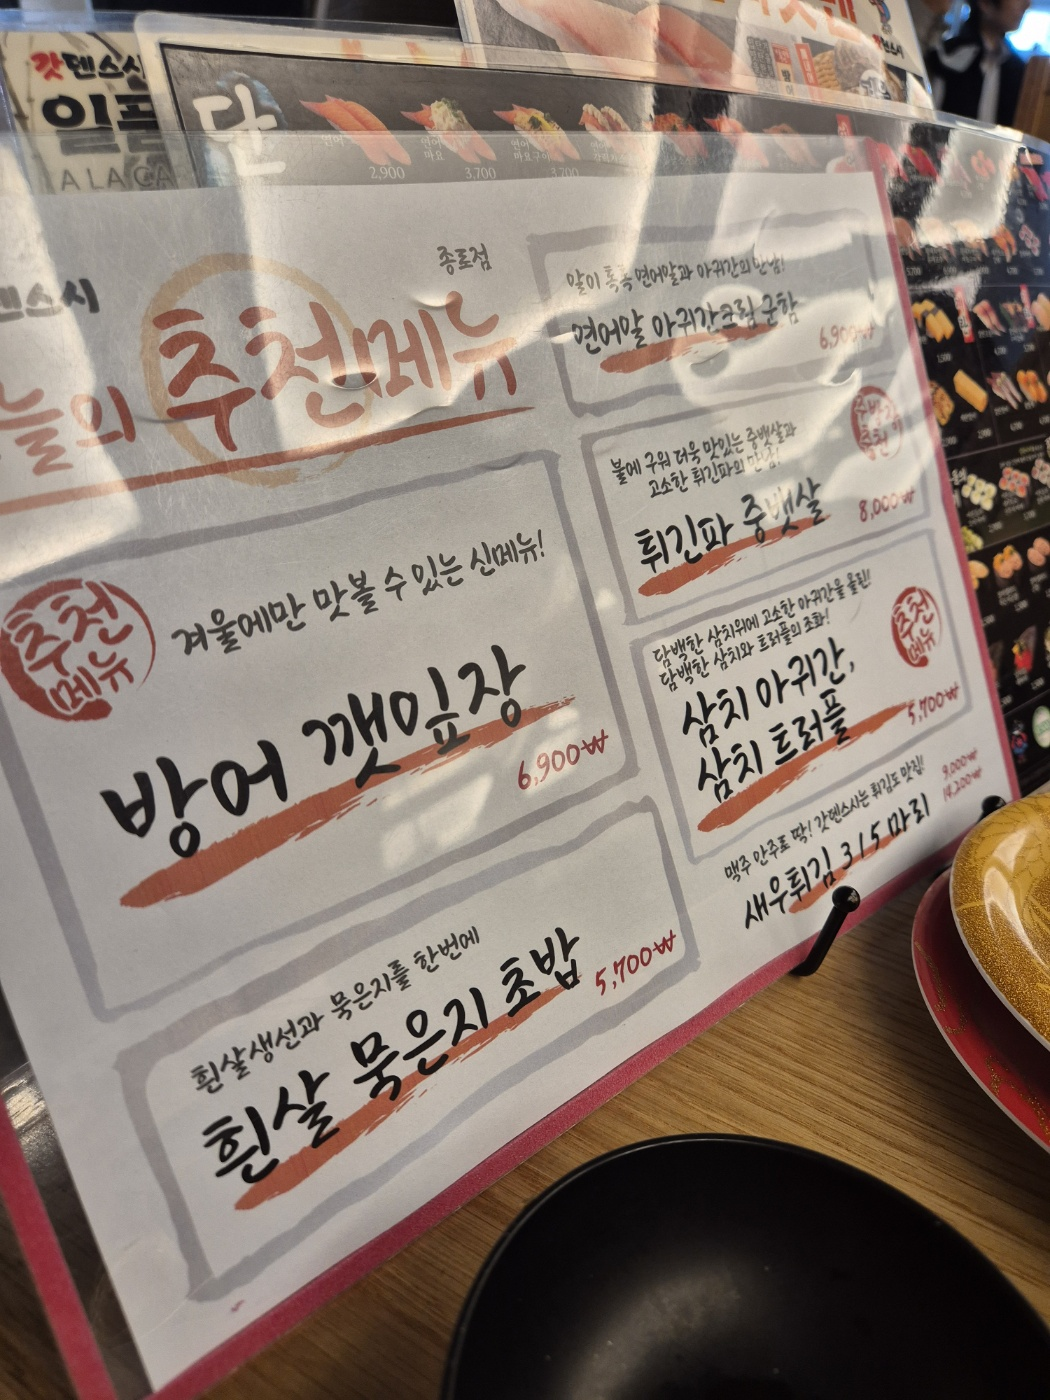 갓덴스시
일품
ALACA
단
연어
2,900
연어
마요
3,700
연어
마요구이
3,700
덴스시
종로점
늘의 추천메뉴
추천
메뉴
겨울에만 맛볼 수 있는 신메뉴!
방어 깻잎장
6,900₩
흰살생선과 묵은지를 한번에
흰살 묵은지 초밥
5,700₩
알이 톡톡 연어알과 아귀간의 만남!
연어알 아귀간크림 군함
6,900₩
불에 구워 더욱 맛있는 중뱃살과
고소한 튀긴파의 만남!
튀긴파 중뱃살
8,000₩
추천
담백한 삼치위에 고소한 아귀간을 올린!
담백한 삼치와 트러플의 조화!
삼치 아귀간,
삼치 트러플
5,700₩
추천
메뉴
맥주 안주로 딱! 갓덴스시는 튀김도 맛집!
새우튀김 3/5마리
9,000₩
14,200₩